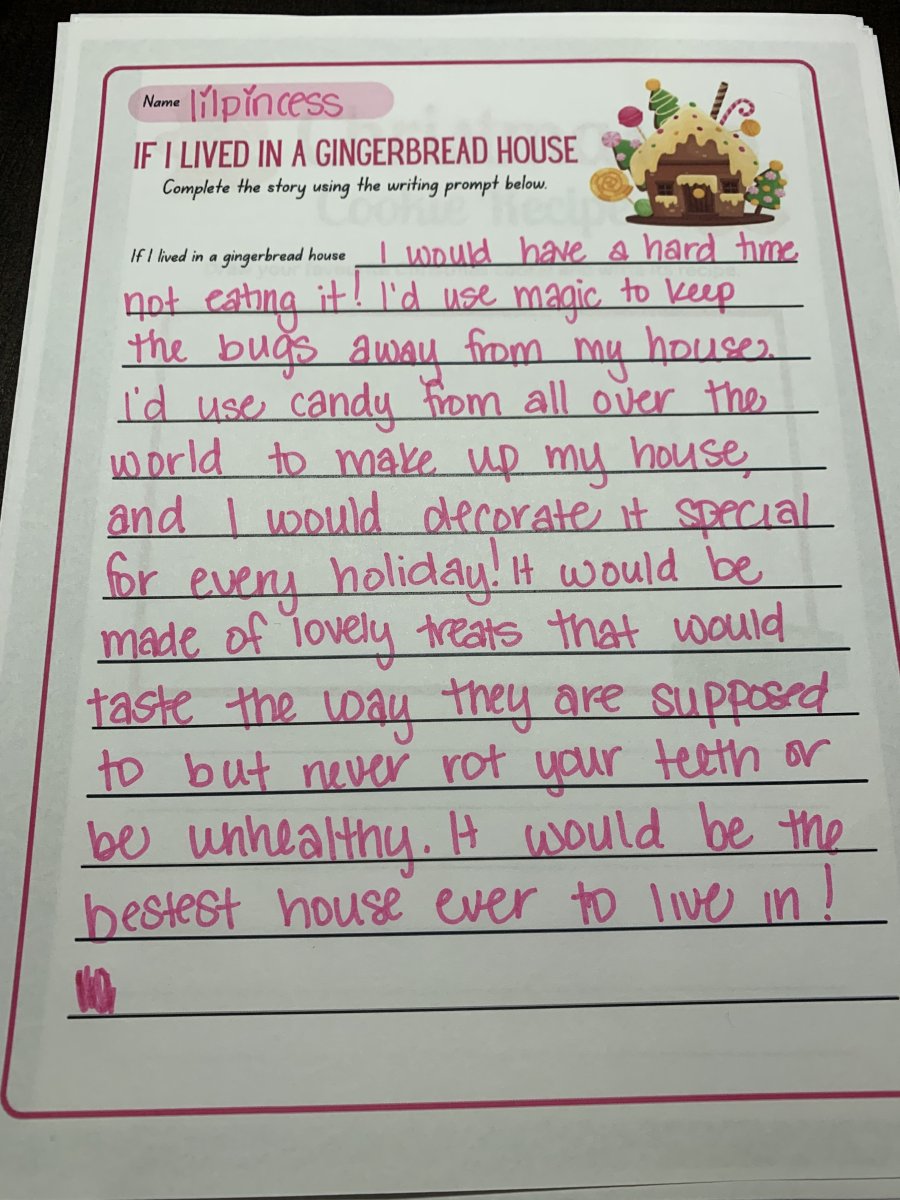 Name lilpincess
IF I LIVED IN A GINGERBREAD HOUSE
Complete the story using the writing prompt below.
If I lived in a gingerbread house I would have a hard time
not eating it! I'd use magic to keep
the bugs away from my house.
I'd use candy from all over the
world to make up my house,
and I would decorate it special
for every holiday! It would be
made of lovely treats that would
taste the way they are supposed
to but never rot your teeth or
be unhealthy. It would be the
bestest house ever to live in!